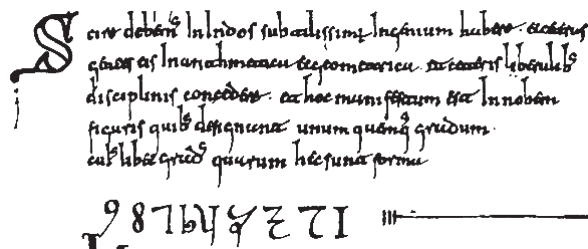 Scire debem⁹ In Indos subtilissimū Ingenium habere. et ceteras
gentes eis In arithmetica et geometrica. et ceteris liberalib⁹
disciplinis concedere. et hoc manifestum est In nobem
figuris quib⁹ designant unum quemq; gradum
cui⁹libet grad⁹ quarum hec sunt forma
9 8 7 6 5 4 3 2 1